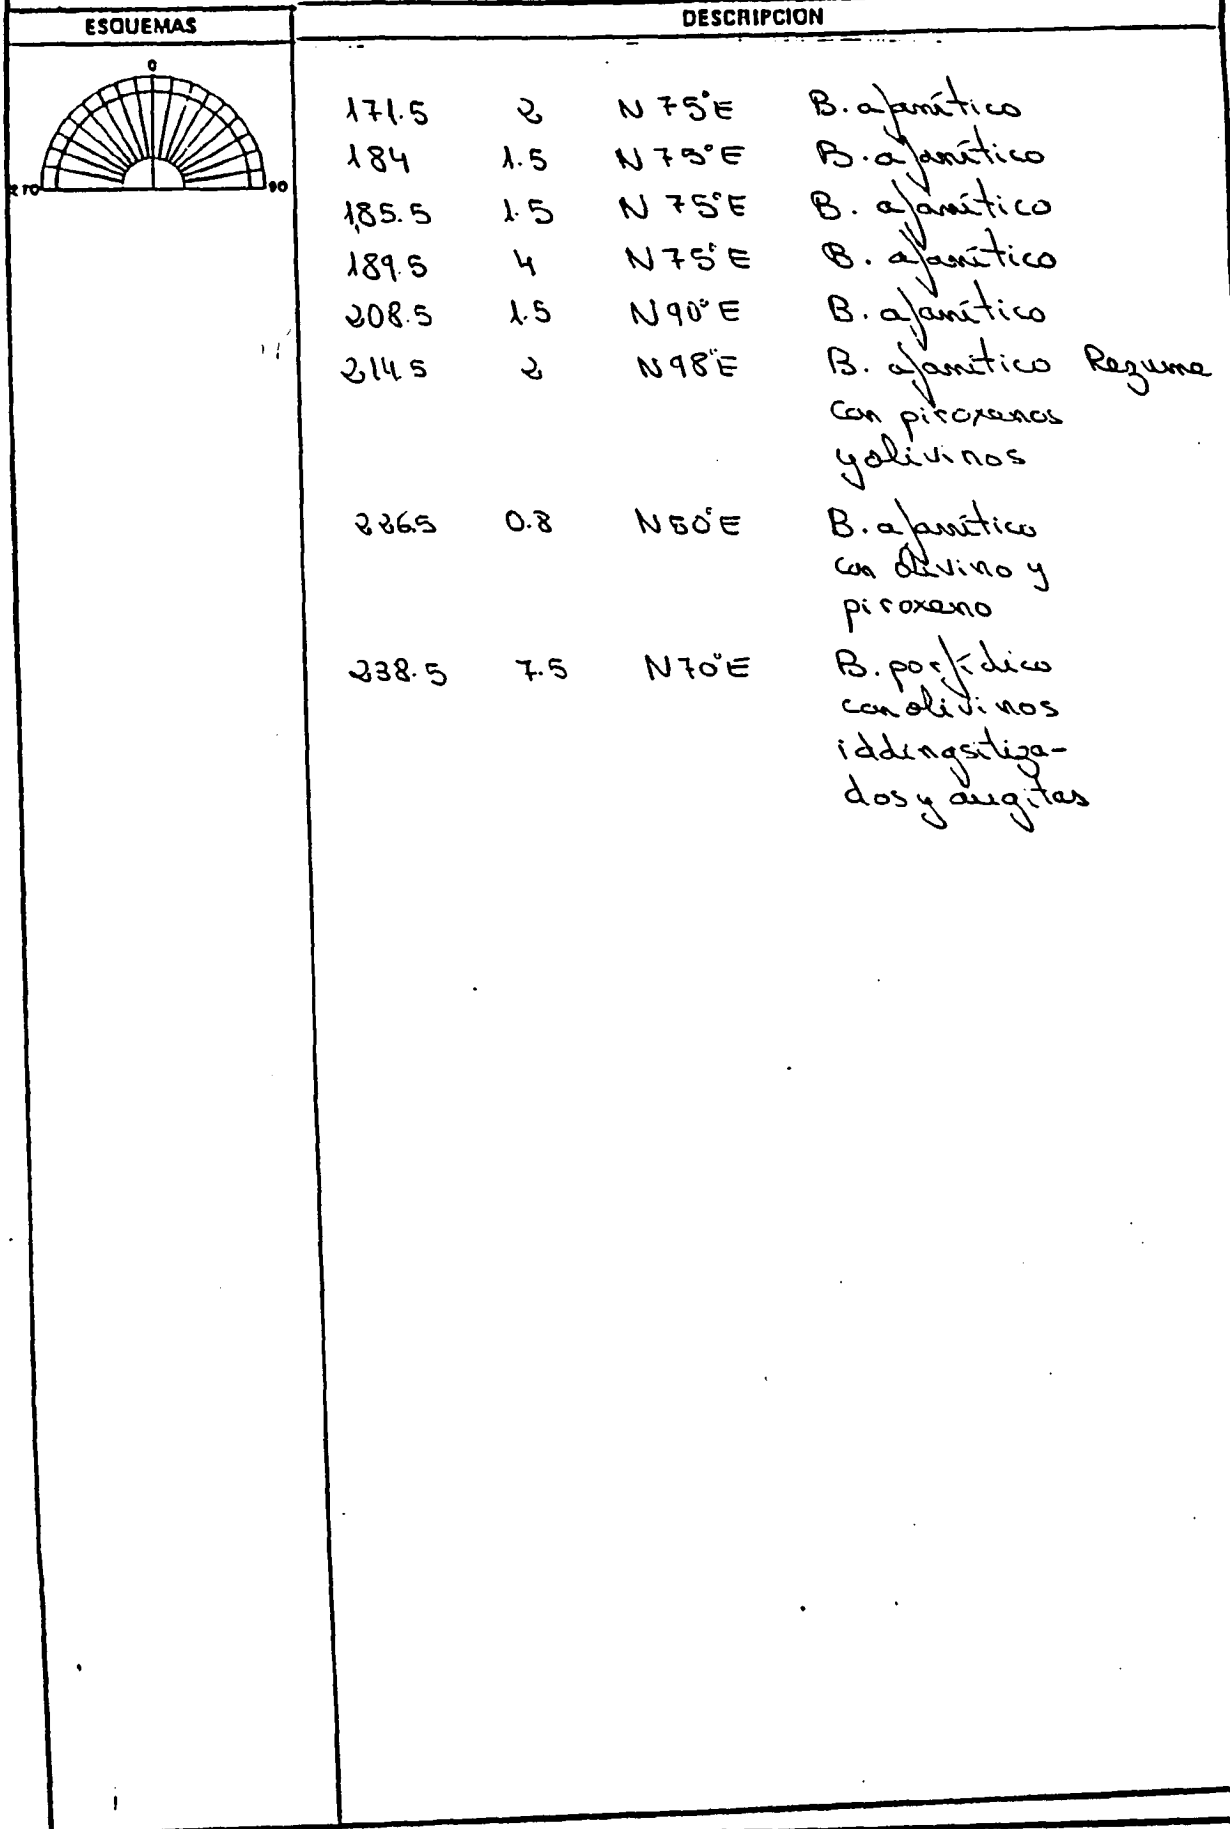 ESQUEMAS
DESCRIPCION
0
270
90
171.5 2 N 75°E B. afanítico
184 1.5 N 75°E B. afanítico
185.5 1.5 N 75°E B. afanítico
189.5 4 N 75°E B. afanítico
208.5 1.5 N 90°E B. afanítico
214.5 2 N 98°E B. afanítico Rezuma
con piroxenos
y olivinos
226.5 0.8 N 50°E B. afanítico
con olivino y
piroxeno
238.5 7.5 N 70°E B. porfídico
con olivinos
iddingsitiza-
dos y augitas